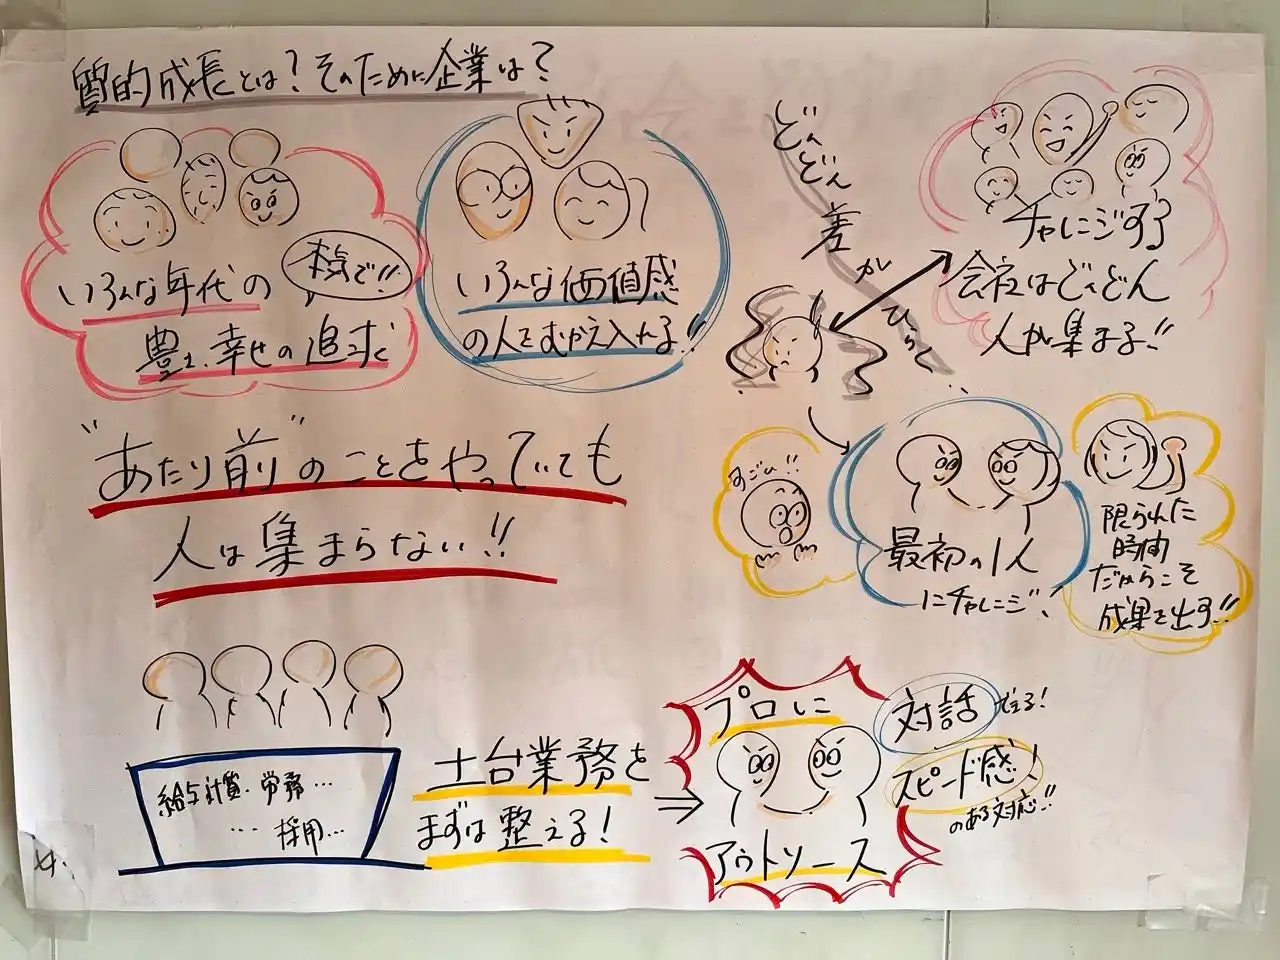 質的成長とは?そのために企業は?
いろんな年代の
本気で!!
豊さ、幸せの追求
いろんな価値感
の人をむかえ入れる!!
どんどん
差
が
ひらく…
チャレンジする
会社はどんどん
人が集まる!!
"あたり前"のことをやっていても
人は集まらない!!
すごい!!
最初の1人
にチャレンジ!
限られた
時間
だからこそ
成果を出す!!
給与計算・労務…
…採用…
土台業務を
まずは整える!
⇒
プロに
アウトソース
対話できる!
スピード感!
のある対応!!